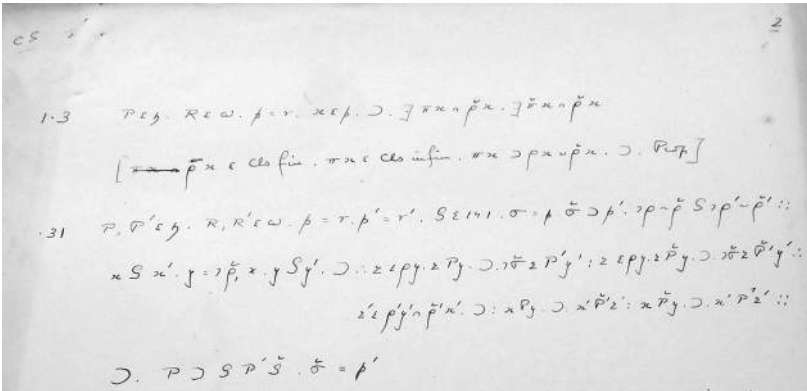 2
1·3 P ε η . R ε ω . p = r . x ε p . ⊃ . ∃ πx ∩ ρ̆x . ∃ π̆x ∩ ρ̆x
[ ρ̆x ε Cls fin . πx ε Cls infin . πx ⊃ ρx ∪ ρ̆x . ⊃ . Prop]
·31 P, P' ε η . R, R' ε ω . p = r . p' = r' . S ε 1→1 . σ = p . σ̆ ⊃ p' . ɿρ ~ ρ̆ S ɿρ' ~ ρ̆' ::
x S x' . y = ɿρ̆, x . y S y' . ⊃ ∴ z ε ρy . z P y . ⊃ . ɿσ̆ z P' y' : z ε ρy . z P̆ y . ⊃ . ɿσ̆ z P̆' y' ∴
z' ε ρ'y' ∩ ρ̆'x' . ⊃ : x P y . ⊃ . x' P̆' z' : x P̆ y . ⊃ . x' P' z' ::
⊃ . P ⊃ S P' S̆ . σ̆ = p'